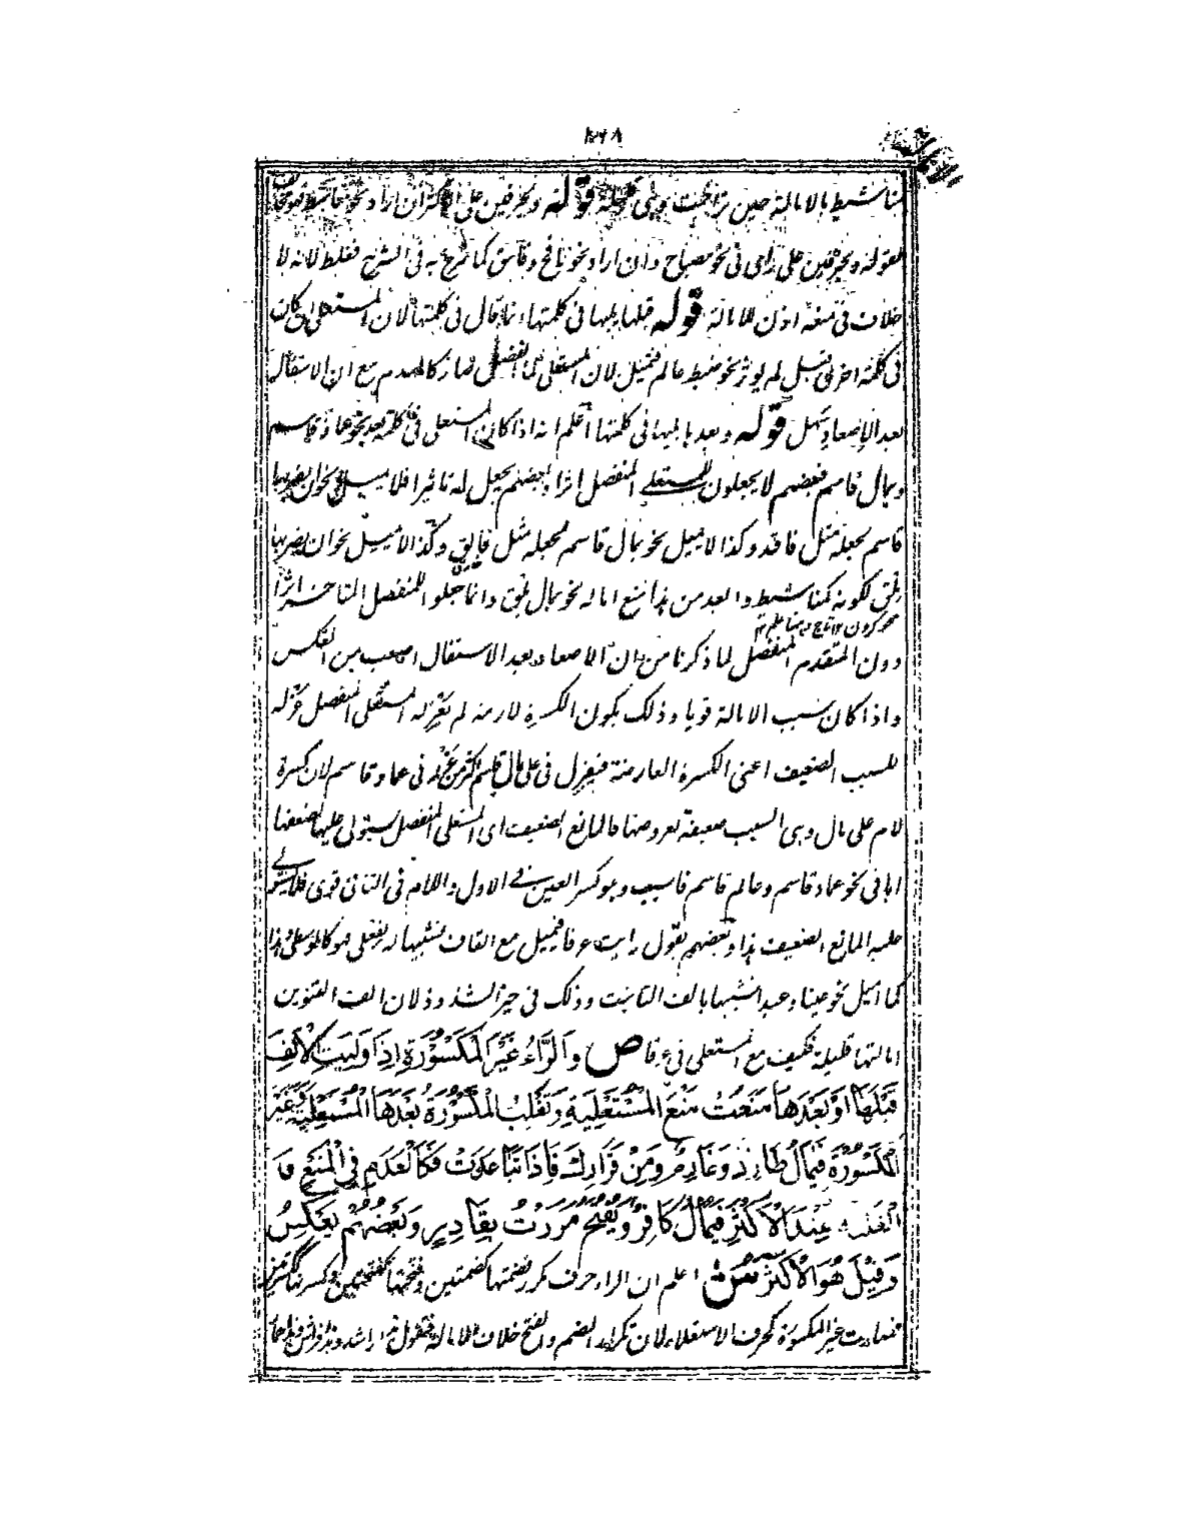 الامالة
مناشيط بالامالة حين تراخت وهي قليلة قوله وبحرفين على الاكثر ان اراد نحو
لقوله وبحرفين على راى فى نحو مصباح وان اراد نحو نافخ وفاسق كما شرح به فى الشرح فغلط لانه لا
خلاف فى منعه اذن للامالة قوله قبلها يليها فى كلمتها انما قال فى كلمتها لان المستعلى ان كان
فى كلمة اخرى قبل لم يوثر نحو ضبط عالم فتميل لان المستعلى لما انفصل صار كالعدم مع ان الاستفال
بعد الاصعاد سهل قوله وبعد ما يليها فى كلمتها اعلم انه اذا كان المستعلى فى كلمة بعد نحو عماد قاسم
وبمال قاسم فبعضهم لا يجعلون للمستعلى المنفصل اثرا وبعضهم يجعل له تاثيرا فلا يميل نحو ان يضربها
قاسم لجعله مثل فاقد وكذا لا يميل نحو بمال قاسم لجعله مثل فالق وكذا لا يميل نحو ان يضربها
ملق لكونه كمناشيط وابعد من هذا منع امالة نحو بمال ملق وانما جعلوا للمنفصل المتاخر اثرا
دون المتقدم المنفصل لما ذكرنا من ان الاصعاد بعد الاستفال اصعب من العكس
واذا كان سبب الامالة قويا وذلك بكون الكسرة لازمة لم يعزله المستعلى المنفصل عزله
للسبب الضعيف اعنى الكسرة العارضة فيعزل فى على مال قاسم اكثر من عزله فى عماد قاسم لان كسرة
لام على مال وهى السبب ضعيفة لعروضها فالمانع الضعيف اى المستعلى المنفصل يستولى عليها لضعفها
اما فى نحو عماد قاسم وعالم قاسم فالسبب وهو كسر العين فى الاول واللام فى الثانى قوى فلا يستولى
عليه المانع الضعيف هذا وبعضهم يقول رايت عرقا فيميل مع القاف تشبيها له بفعلى فهو كالوسطى وهذا
كما اميل نحو عينا وعبدا تشبيها بالف التانيث وذلك فى حيز الشذوذ لان الف التنوين
امالتها قليلة فكيف مع المستعلى فى عرقا ص وَالرَّاءُ غَيْرُ الْمَكْسُوْرَةِ اِذَا وَلِيَتِ الْاَلِفَ
قَبْلَهَا اَوْ بَعْدَهَا مَنَعَتْ مَنْعَ الْمُسْتَعْلِيَةِ وَتَغْلِبُ الْمَكْسُوْرَةُ بَعْدَهَا الْمُسْتَعْلِيَةَ وَغَيْرَ
الْمَكْسُوْرَةِ فَيُمَالُ طَارِدٌ وَغَارِمٌ وَمِنْ قَرَارِكَ فَاِذَا تَبَاعَدَتْ فَكَالْعَدَمِ فِى الْمَنْعِ وَ
الْغَلَبَةِ عِنْدَ الْاَكْثَرِ فَيُمَالُ كَافِرٌ وَيُفْتَحُ مَرَرْتُ بِقَادِرٍ وَبَعْضُهُمْ يَعْكِسُ
وَقِيْلَ هُوَ الْاَكْثَرُ ش اعلم ان الراء حرف مكرر فضمتها كضمتين وفتحتها كفتحتين وكسرتها ككسرتين
فصارت غير المكسورة كحرف الاستعلاء لان تكرار الضم والفتح خلاف الامالة فتقول هذا راشد وهذا فراش